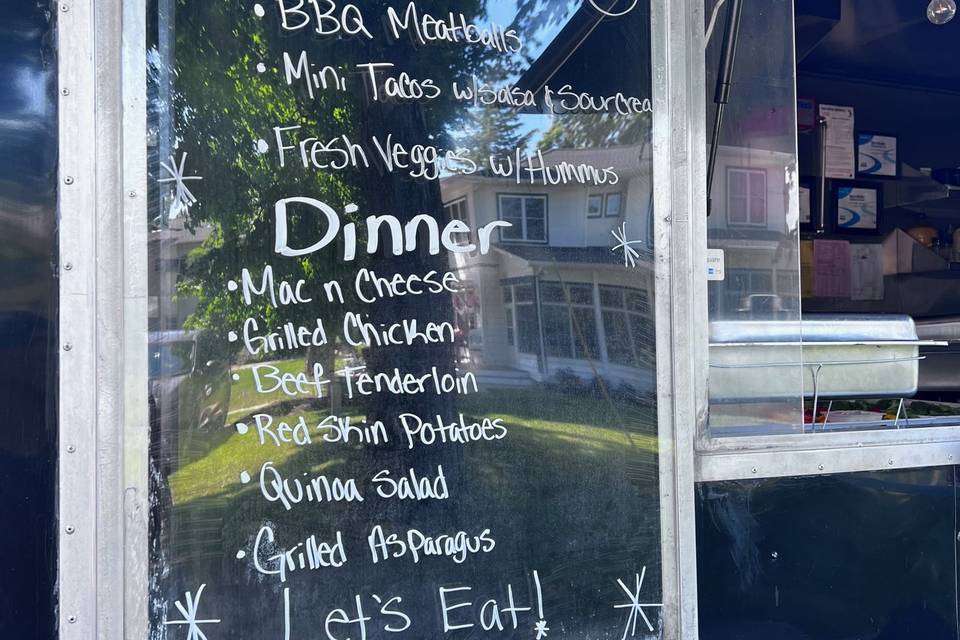 • BBQ Meatballs
• Mini Tacos w/Salsa & SourCrea
• Fresh Veggies w/Hummus
Dinner
• Mac n Cheese
• Grilled Chicken
• Beef Tenderloin
• Red Skin Potatoes
• Quinoa Salad
• Grilled Asparagus
Let's Eat!